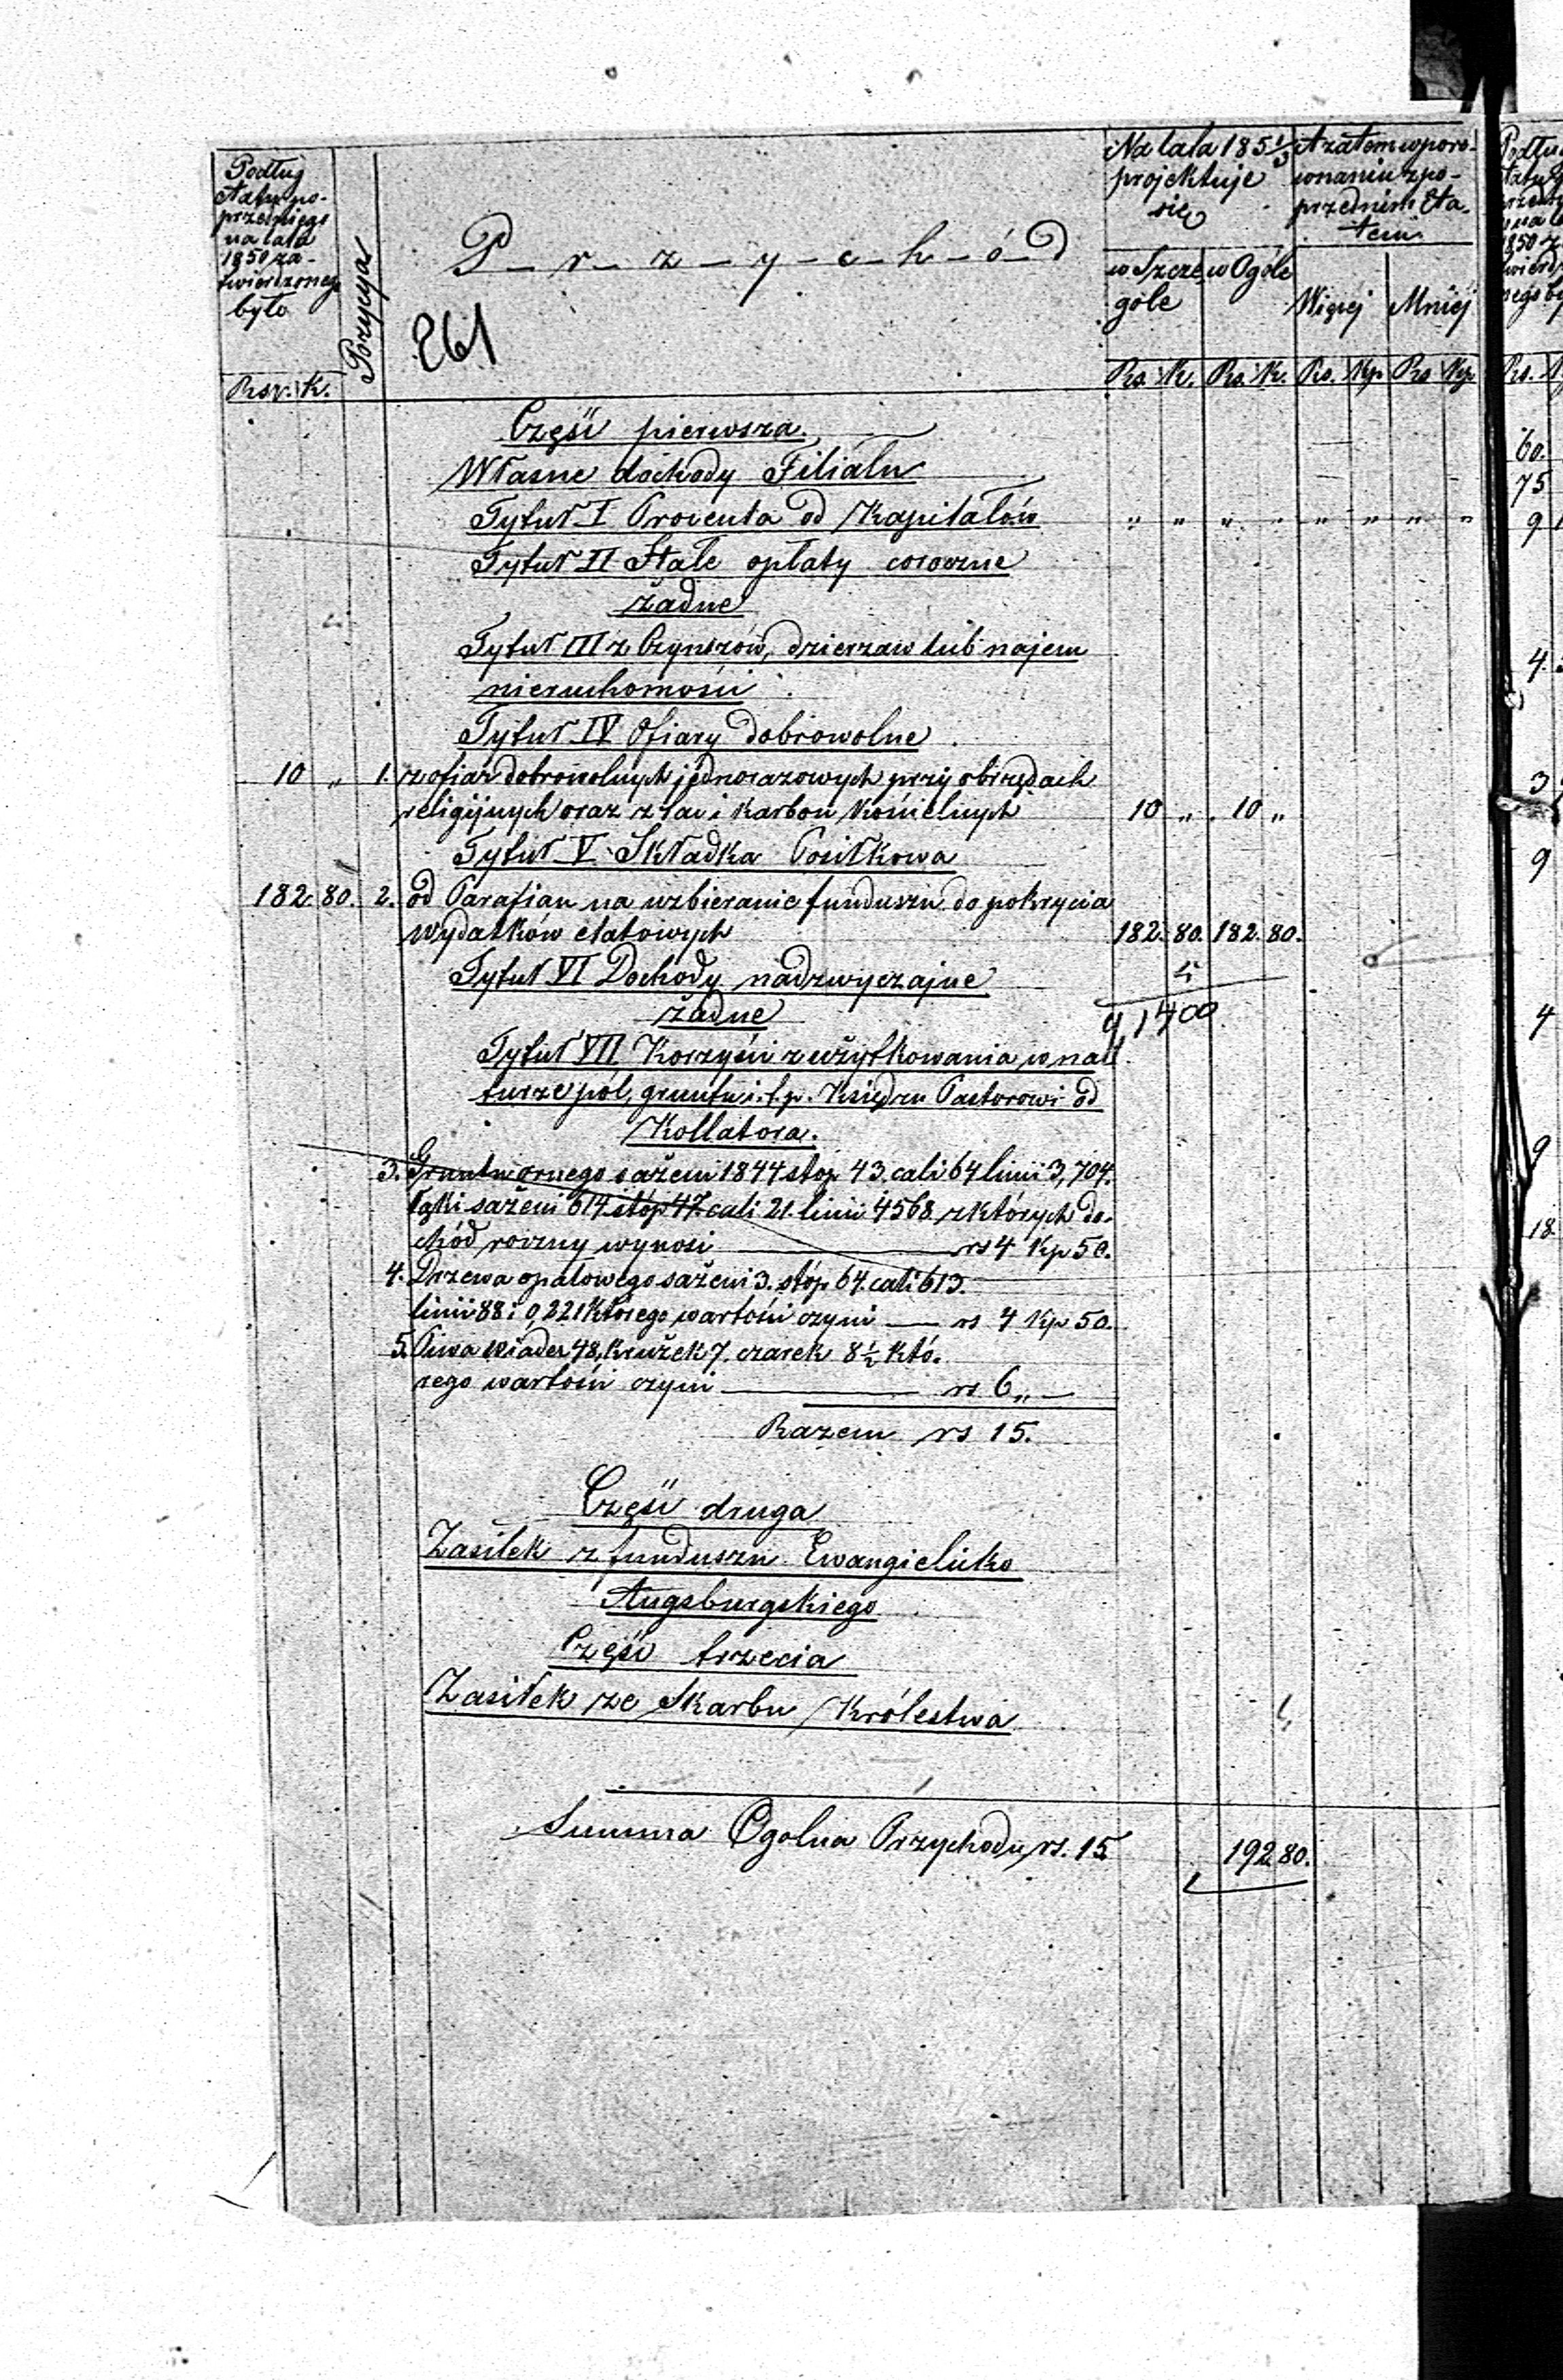 Podług
Etatu po-
przedniego
na lata
1850 za-
twierdzonego
było
Rsr. K.
Pozycya
P-r-z-y-c-h-ó-d
261
Na lata 185 1/3
projektuje
się
w Szcze-
gole
w Ogóle
A zatem w poró-
wnaniu z po-
przednim Eta-
tem
Więcej
Mniej
Rs. K. Rs. K. Rs. Kp. Rs Kp.
Część pierwsza.
Własne dochody Filiału
Tytuł I Procenta od Kapitałów " " " " " " " "
Tytuł II Stałe opłaty coroczne
żadne
Tytuł III z Czynszów, dzierzaw lub najem
nieruchomości
Tytuł IV Ofiary dobrowolne
10 " 1. z ofiar dobrowolnych jednorazowych przy obrzędach
religijnych oraz z tac i karbon kościelnych 10 " 10 "
Tytuł V Składka Posiłkowa
182. 80. 2. od Parafian na uzbieranie funduszu do pokrycia
wydatków etatowych 182. 80. 182. 80.
Tytuł VI Dochody nadzwyczajne 5
żadne 91400
Tytuł VII Korzyści z użytkowania w na-
turze pól, gruntu i. t. p. Księdzu Pastorowi od
Kollatora.
3. Gruntu ornego sażeni 1844 stop 43. cali 64 linii 3,704.
Łąki sażeni 614. stóp 47. cali 21. linii 4568 z których do-
chód roczny wynosi rs 4 Kp 50.
4. Drzewa opałowego sażeni 3. stóp 64. cali 613.
linii 88 i 0,221 którego wartość czyni rs 4 Kp 50.
5. Piwa wiader 48, kružek 7. czarek 8 1/2 któ-
rego wartość czyni rs 6 "
Razem rs 15.
Część druga
Zasiłek z funduszu Ewangielicko
Augsburgskiego
Część trzecia
Zasiłek ze Skarbu Królestwa
Summa Ogolna Przychodu rs. 15 192 80.
Rs.
60.
75
9
4.
3
9
4
9
18.